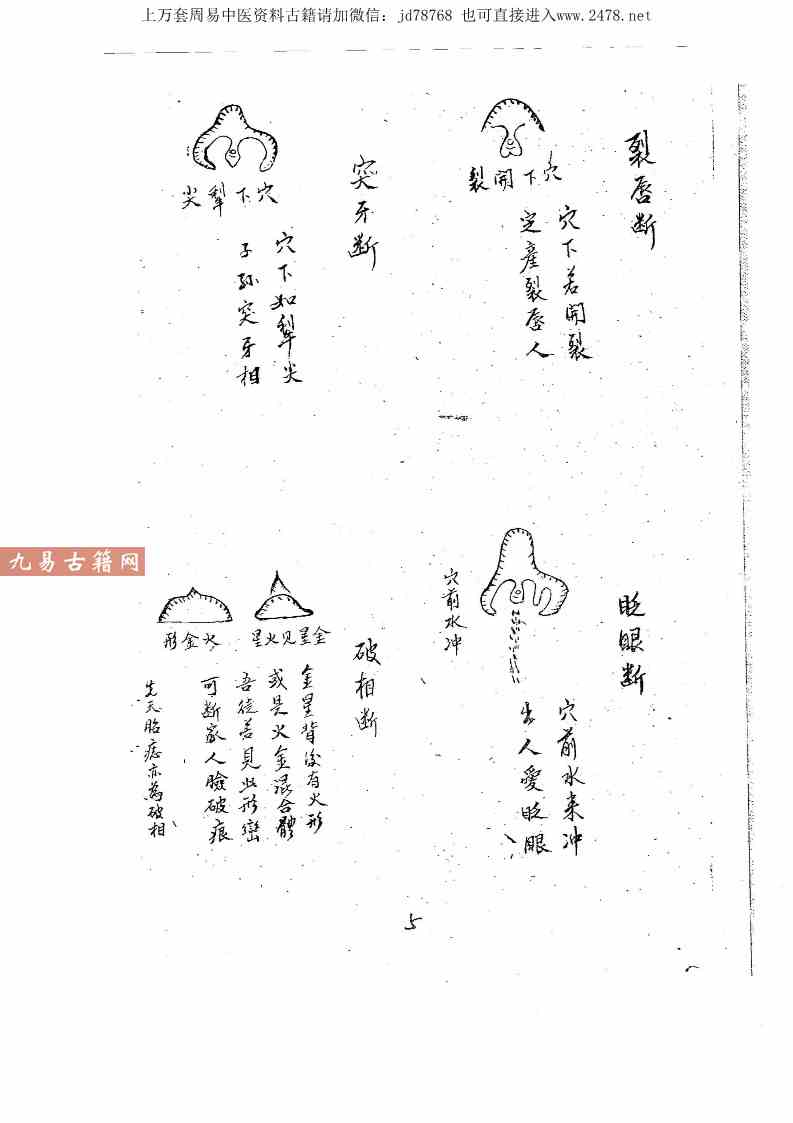 上万套周易中医资料古籍请加微信：jd78768 也可直接进入www.2478.net
裂唇断
穴下開裂
穴下若開裂
定產裂唇人
突牙断
穴下犁尖
穴下如犁尖
子孙突牙相
九易古籍网
眨眼断
穴前水冲
穴前水来冲
出人愛眨眼
破相断
金星见火星
火金形
金星背後有火形
或是火金混合體
吾徒若見此形巒
可断家人臉破痕
先天胎痣亦為破相
5